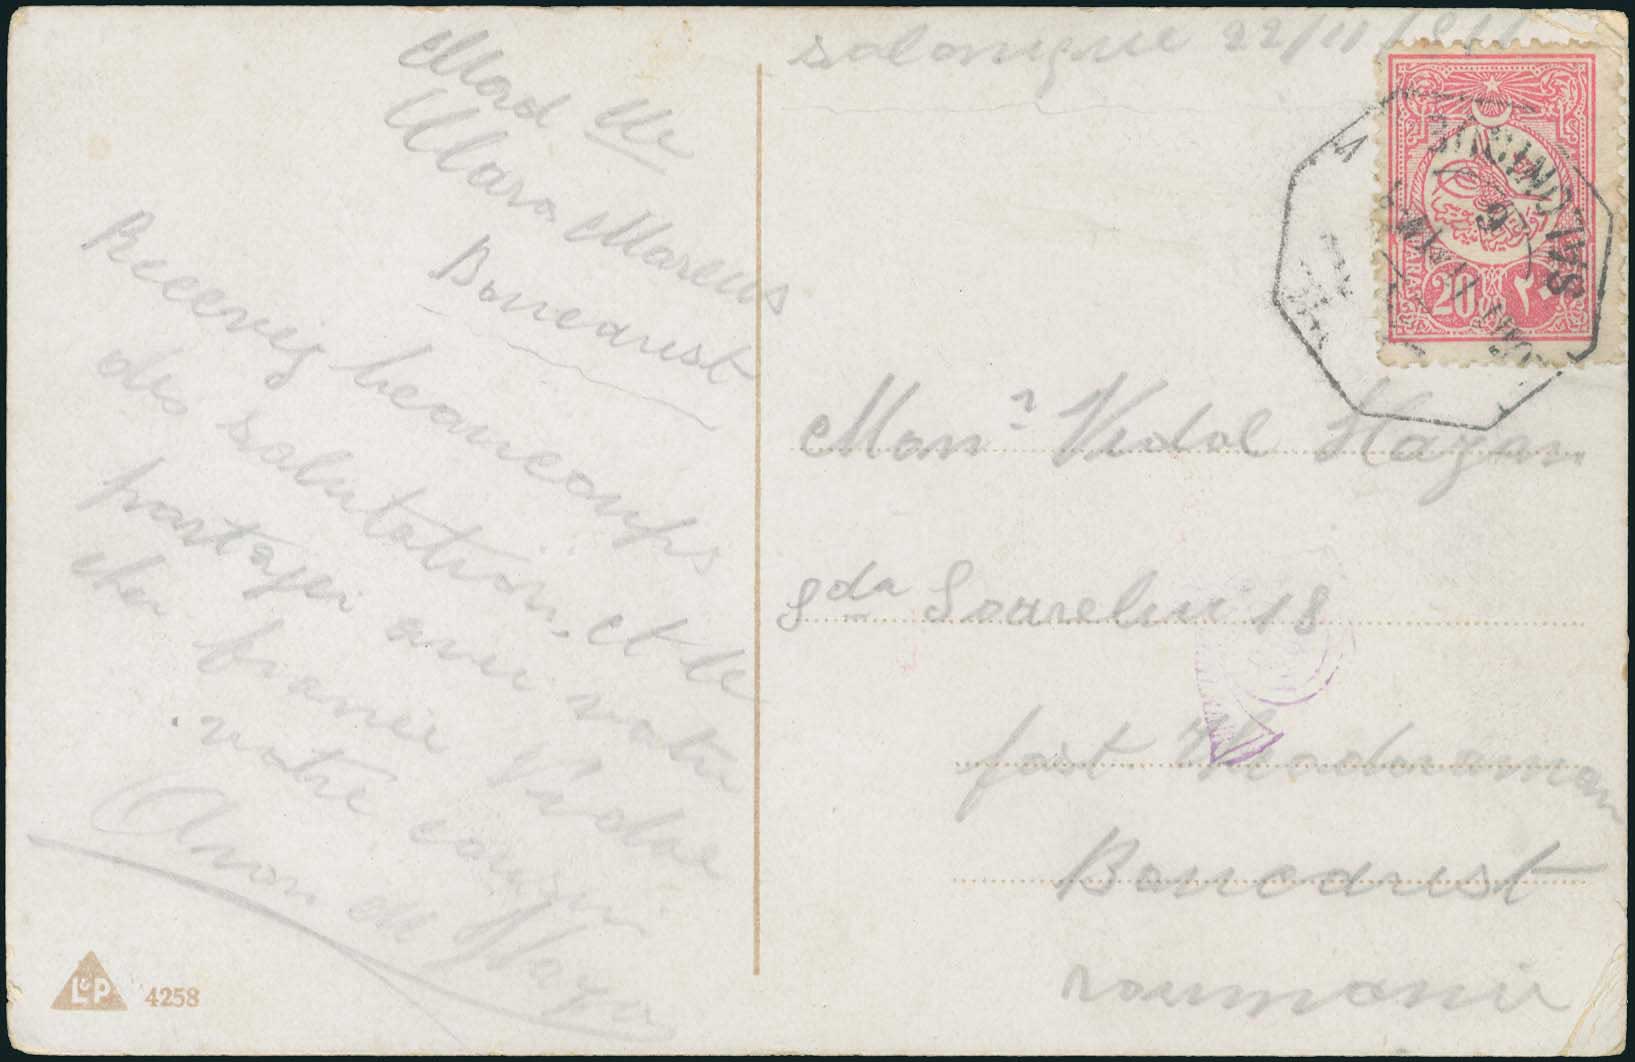 Mad lle
Clara Marcus
Boucarest
Recevez beaucoups
des salutation, et le
partajer avec votre
cher fiancé Vidal
votre cousin
Aron de Haza
L&P
4258
salonique 22/11/911
20
SALONIQUE
Monr Vidal Hazan
Sda Soarelui 18
fost
Boucarest
roumanie